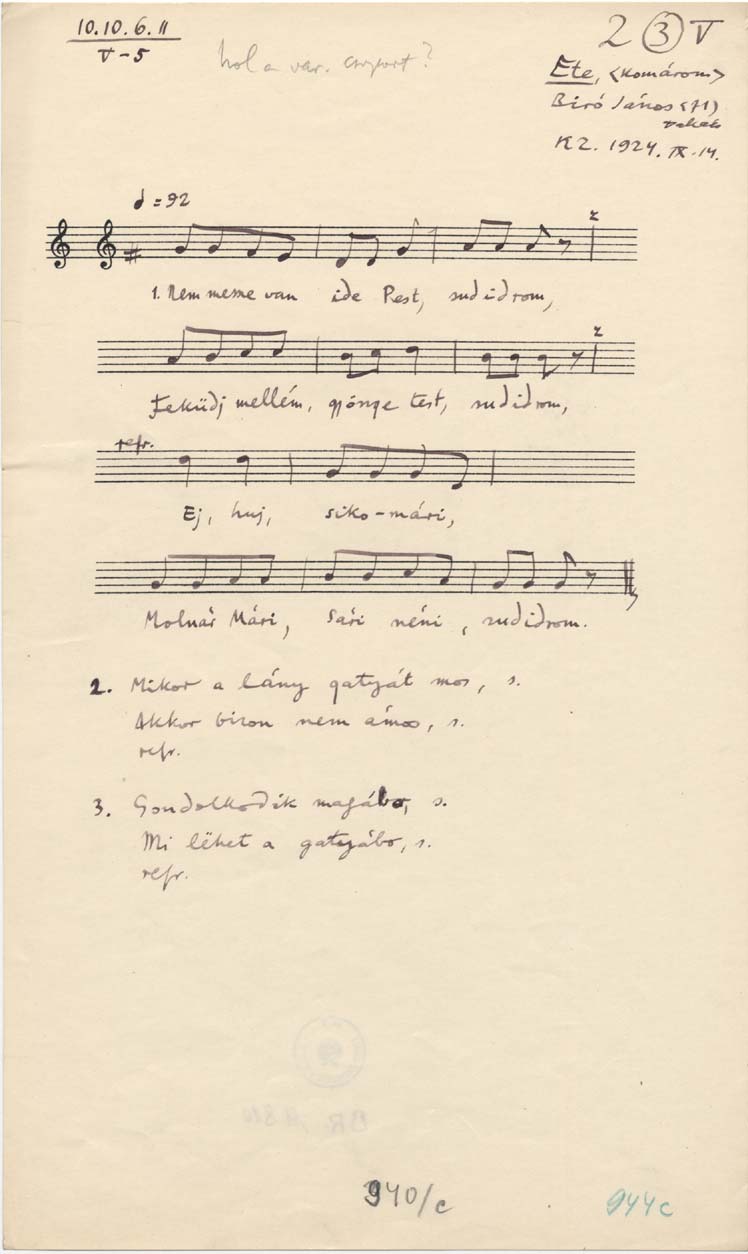 10.10.6.11
V-5
hol a var. csoport?
2 ③ V
Ete, <Komárom>
Biró János <71>
KZ. 1924. IX. 14.
♩ = 92
2
1. Nem messe van ide Pest, sudidrom,
2
Feküdj mellém, gyönge test, sudidrom,
refr.
Ej, huj, siko-mári,
Molnár Mári, Sári néni, sudidrom.
2. Mikor a lány gatyát mos, s.
Akkor bizon nem ámos, s.
refr.
3. Gondolkodik magábo, s.
Mi lëhet a gatyábo, s.
refr.
BR.
940/c
944c